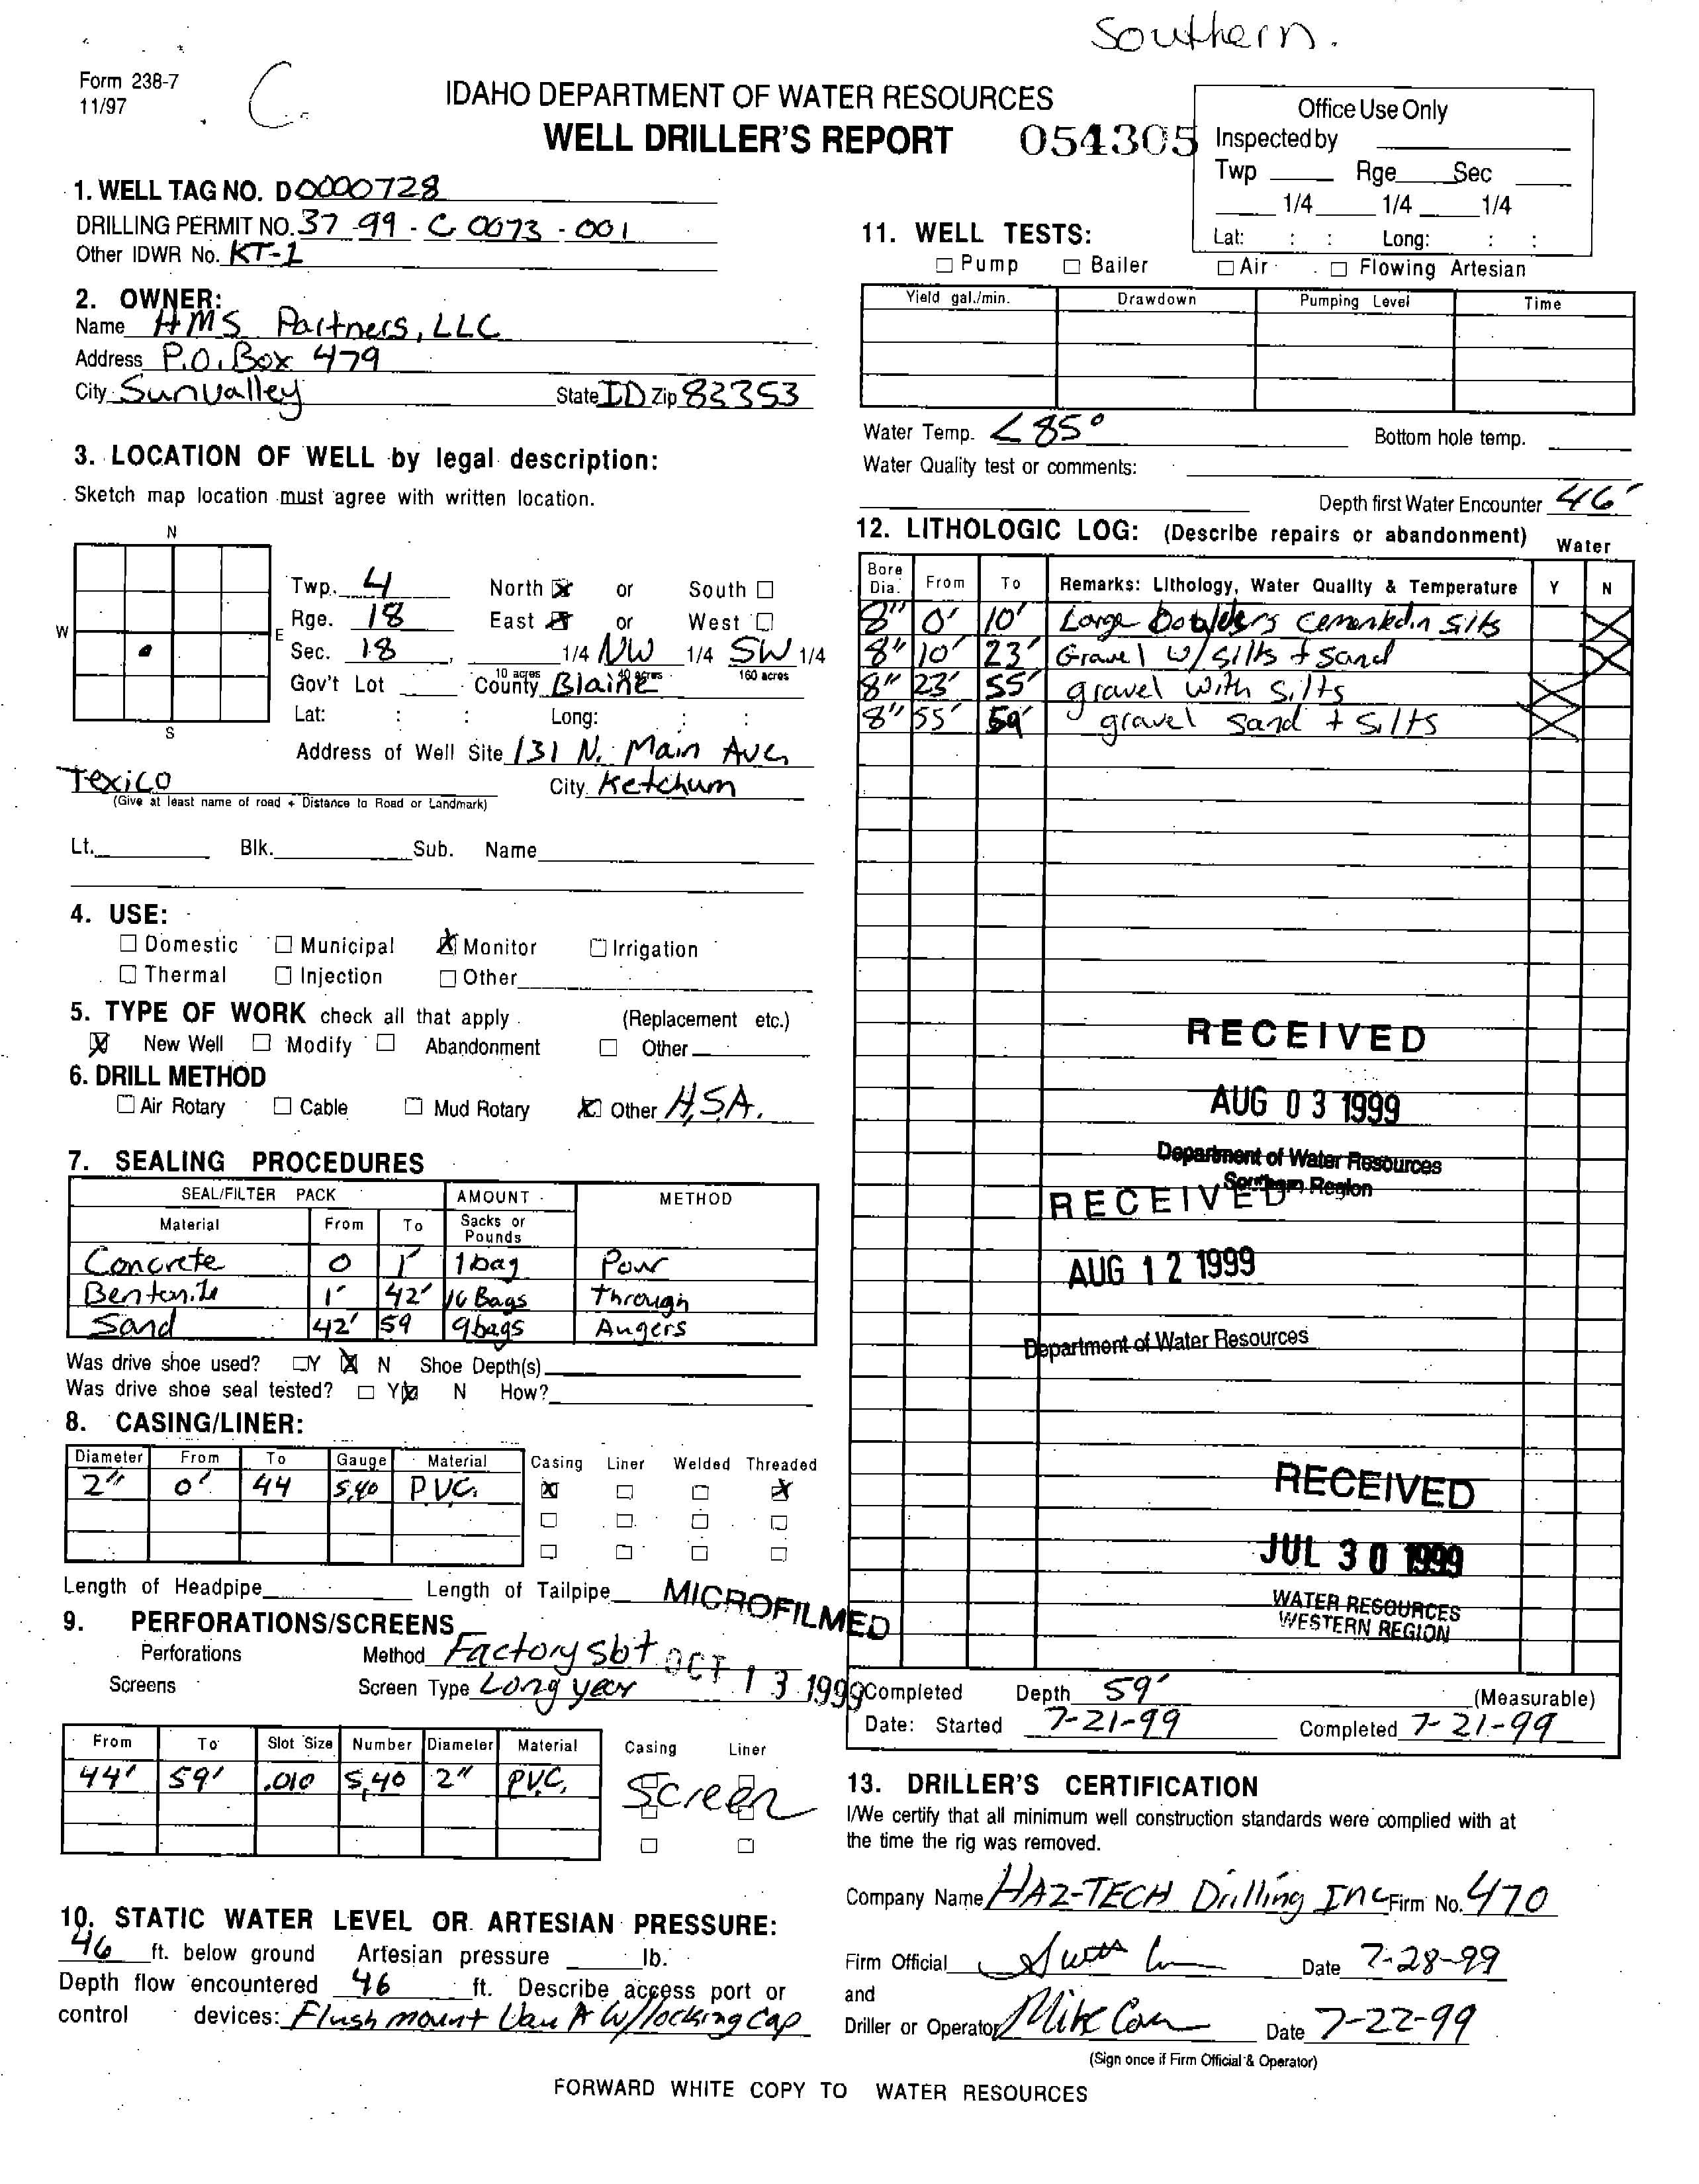 Southern.
Form 238-7
11/97
C.
IDAHO DEPARTMENT OF WATER RESOURCES
WELL DRILLER'S REPORT 054305
Office Use Only
Inspected by
Twp Rge Sec
1/4 1/4 1/4
Lat: : : Long: : :
1. WELL TAG NO. D0000728
DRILLING PERMIT NO. 37-99-C 0073-001
Other IDWR No. KT-1
2. OWNER:
Name HMS Partners, LLC
Address P.O. Box 479
City Sun Valley State ID Zip 83353
3. LOCATION OF WELL by legal description:
Sketch map location must agree with written location.
N
W
E
S
Twp. 4 North X or South
Rge. 18 East X or West
Sec. 18, 1/4 NW 1/4 SW 1/4
10 acres 40 acres 160 acres
Gov't Lot County Blaine
Lat: : : Long: : :
Address of Well Site 131 N. Main Ave,
Texico City Ketchum
(Give at least name of road + Distance to Road or Landmark)
Lt. Blk. Sub. Name
4. USE:
Domestic Municipal X Monitor Irrigation
Thermal Injection Other
5. TYPE OF WORK check all that apply (Replacement etc.)
X New Well Modify Abandonment Other
6. DRILL METHOD
Air Rotary Cable Mud Rotary X Other H.S.A.
7. SEALING PROCEDURES
SEAL/FILTER PACK AMOUNT METHOD
Material From To Sacks or Pounds
Concrete 0 1' 1 bag Pour
Bentonite 1' 42' 16 Bags Through
Sand 42' 59 9 bags Augers
Was drive shoe used? Y X N Shoe Depth(s)
Was drive shoe seal tested? Y X N How?
8. CASING/LINER:
Diameter From To Gauge Material Casing Liner Welded Threaded
2" 0' 44 S,40 PVC. X X
Length of Headpipe Length of Tailpipe
MICROFILMED
OCT 13 1999
9. PERFORATIONS/SCREENS
Perforations Method Factory slot
Screens Screen Type Longyear
From To Slot Size Number Diameter Material Casing Liner
44' 59' .010 S,40 2" PVC, Screen
10. STATIC WATER LEVEL OR ARTESIAN PRESSURE:
46 ft. below ground Artesian pressure lb.
Depth flow encountered 46 ft. Describe access port or
control devices: Flush mount W/locking cap
11. WELL TESTS:
Pump Bailer Air Flowing Artesian
Yield gal./min. Drawdown Pumping Level Time
Water Temp. <85° Bottom hole temp.
Water Quality test or comments:
Depth first Water Encounter 46'
12. LITHOLOGIC LOG: (Describe repairs or abandonment)
Water
Bore Dia. From To Remarks: Lithology, Water Quality & Temperature Y N
8" 0' 10' Large Boulders cemented in silts X
8" 10' 23' Gravel w/ silts + sand X
8" 23' 55' gravel with silts X
8" 55' 59' gravel sand + silts X
RECEIVED
AUG 03 1999
Department of Water Resources
Southern Region
RECEIVED
AUG 12 1999
Department of Water Resources
RECEIVED
JUL 30 1999
WATER RESOURCES
WESTERN REGION
Completed Depth 59' (Measurable)
Date: Started 7-21-99 Completed 7-21-99
13. DRILLER'S CERTIFICATION
I/We certify that all minimum well construction standards were complied with at
the time the rig was removed.
Company Name HAZ-TECH Drilling Inc Firm No. 470
Firm Official Date 7-28-99
and
Driller or Operator Mike Date 7-22-99
(Sign once if Firm Official & Operator)
FORWARD WHITE COPY TO WATER RESOURCES